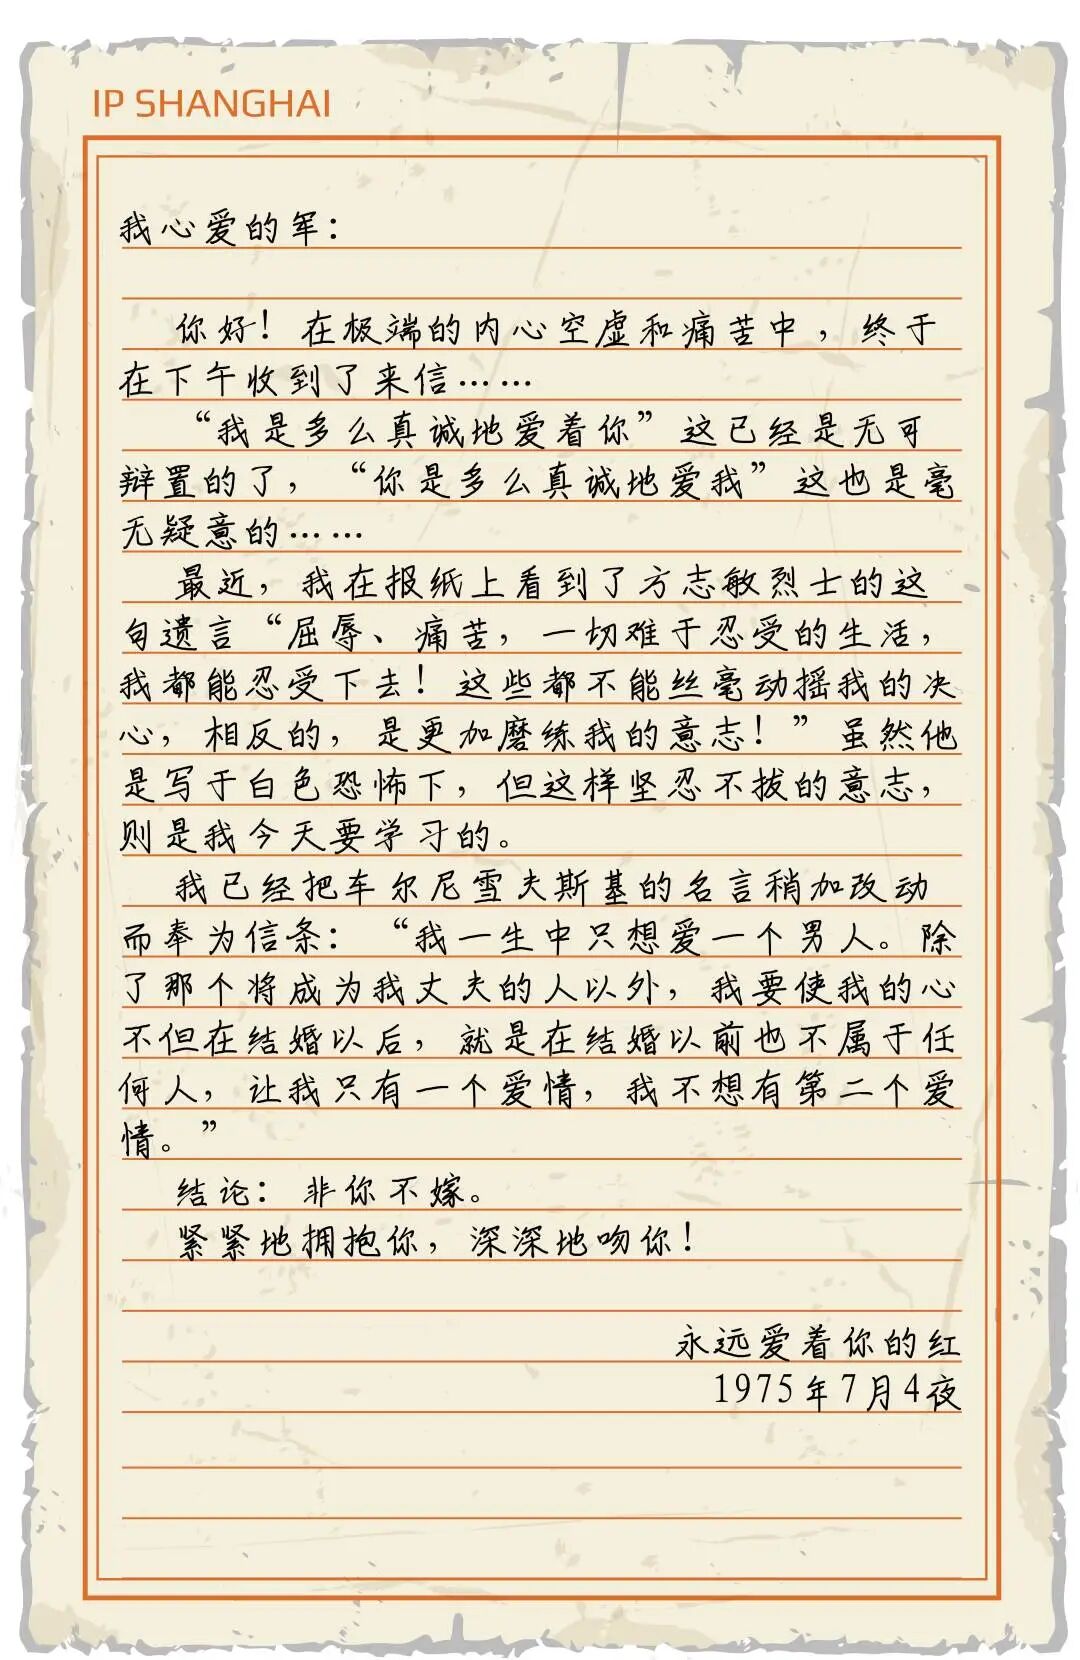 IP SHANGHAI
我心爱的军：
你好！在极端的内心空虚和痛苦中，终于
在下午收到了来信……
“我是多么真诚地爱着你”这已经是无可
辩置的了，“你是多么真诚地爱我”这也是毫
无疑意的……
最近，我在报纸上看到了方志敏烈士的这
句遗言“屈辱、痛苦，一切难于忍受的生活，
我都能忍受下去！这些都不能丝毫动摇我的决
心，相反的，是更加磨练我的意志！”虽然他
是写于白色恐怖下，但这样坚忍不拔的意志，
则是我今天要学习的。
我已经把车尔尼雪夫斯基的名言稍加改动
而奉为信条：“我一生中只想爱一个男人。除
了那个将成为我丈夫的人以外，我要使我的心
不但在结婚以后，就是在结婚以前也不属于任
何人，让我只有一个爱情，我不想有第二个爱
情。”
结论：非你不嫁。
紧紧地拥抱你，深深地吻你！
永远爱着你的红
1975年7月4夜